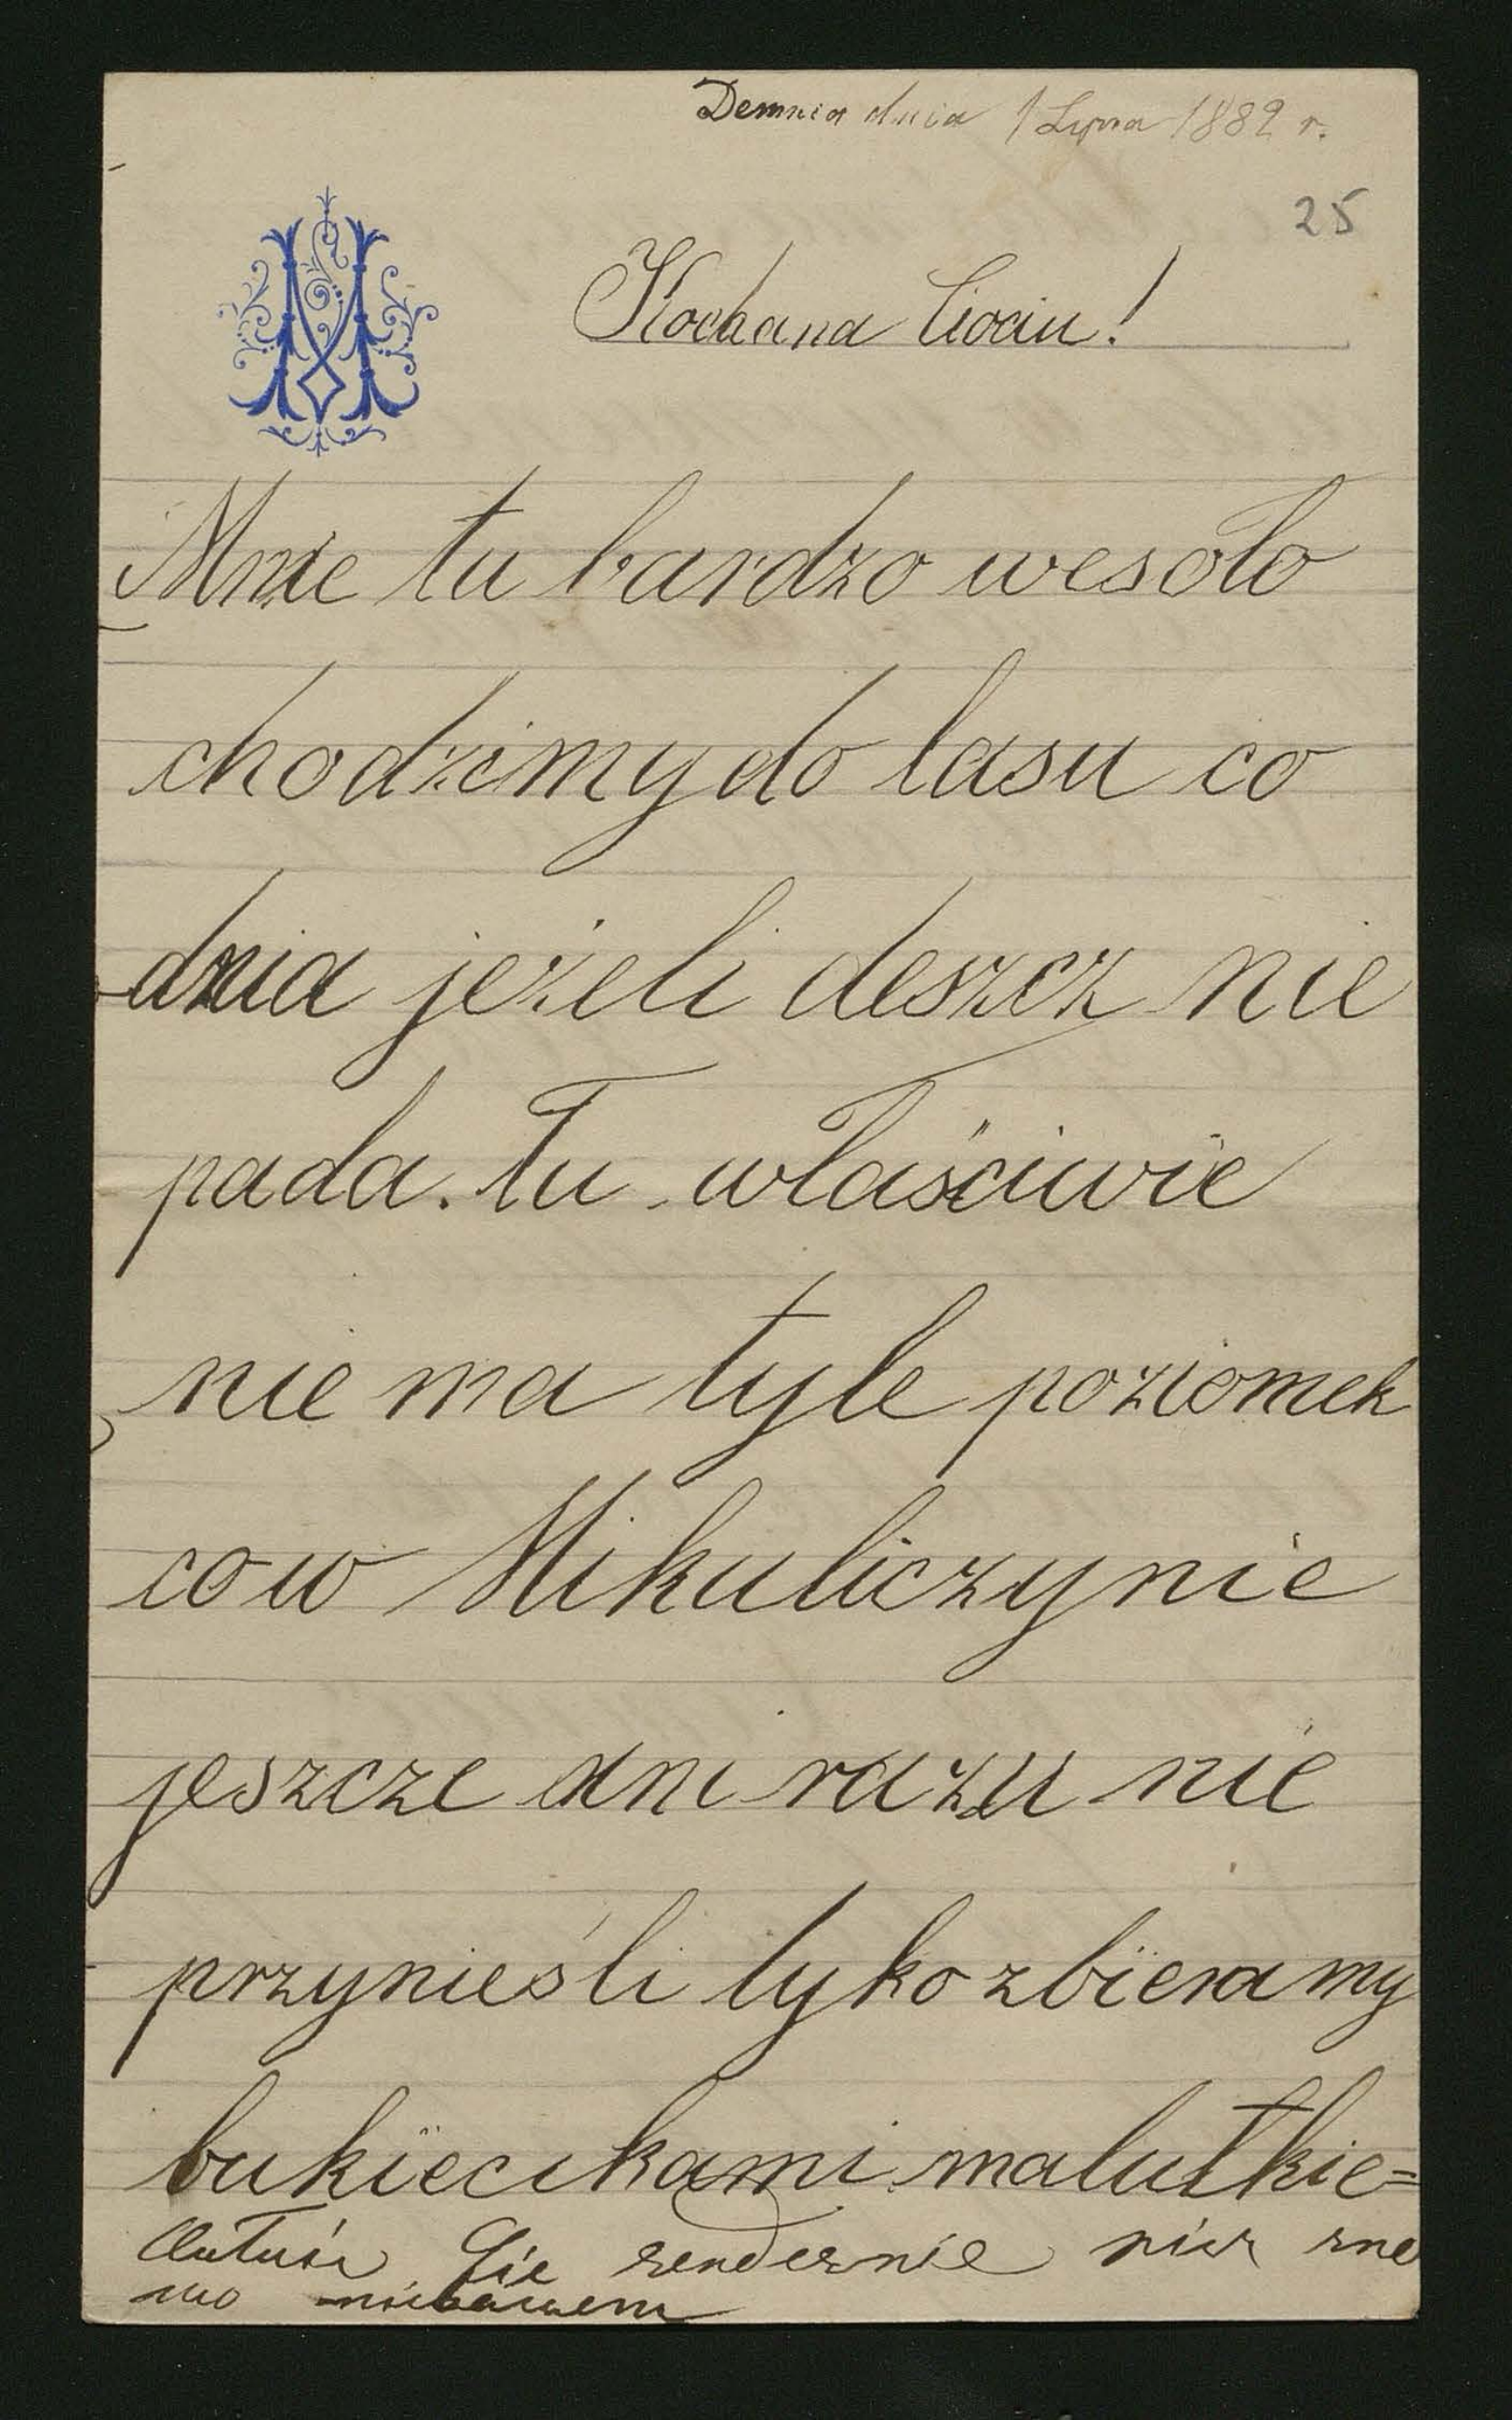 Demnia dnia 1 Lipca 1889 r.
25
Kochana Ciociu!
Mnie tu bardzo wesoło
chodzimy do lasu co
dnia jeżeli deszcz nie
pada. Tu właściwie
nie ma tyle poziomek
co w Mikuliczynie
jeszcze ani razu nie
przynieśli tyko zbieramy
bukiecikami malutkie=
Cię serdecznie